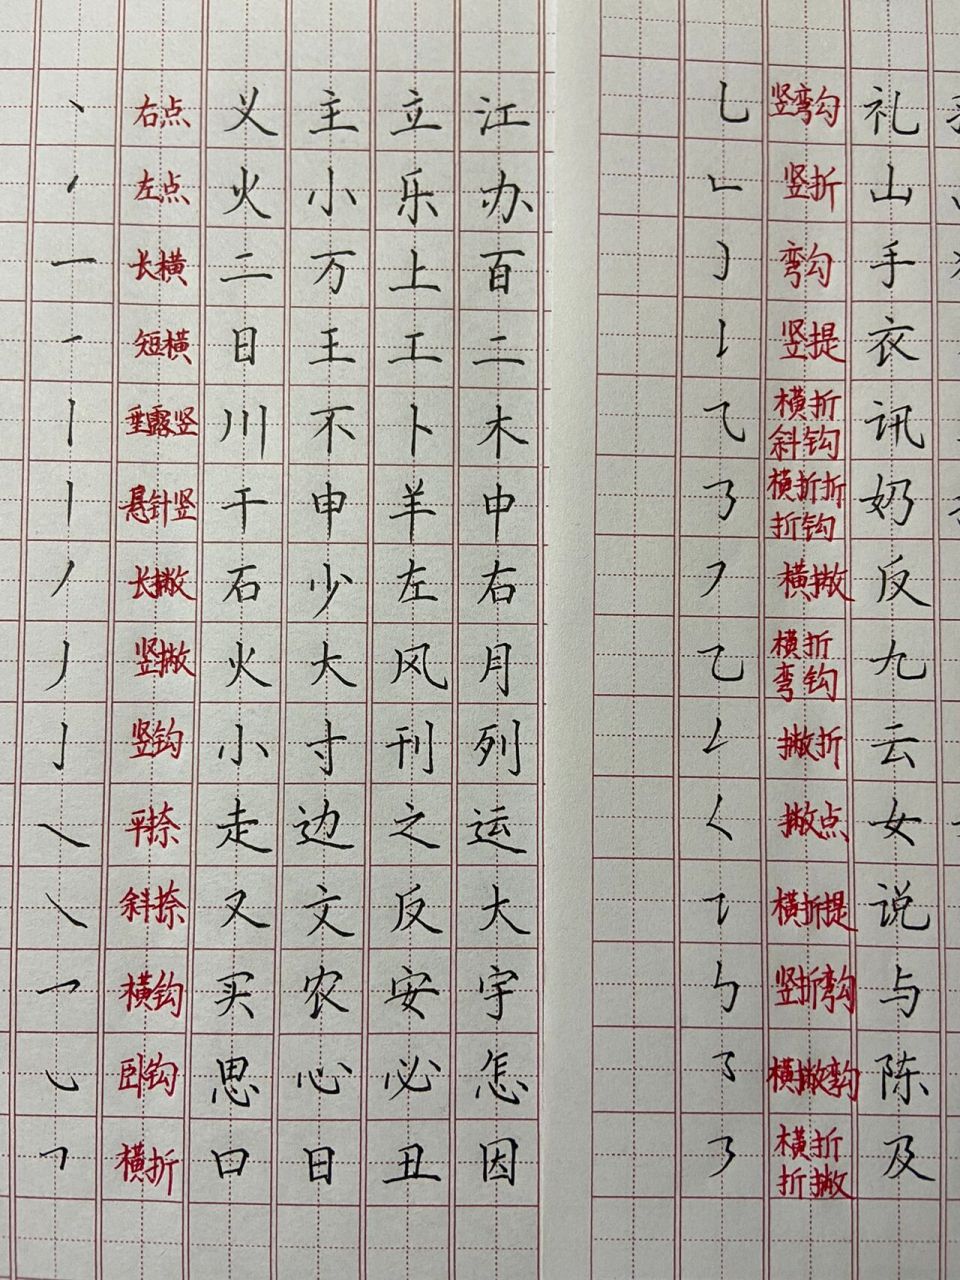 丶 右点 义 主 立 江
左点 火 小 乐 办
一 长横 二 万 上 百
一 短横 日 王 工 二
丨 垂露竖 川 不 卜 木
丨 悬针竖 干 申 羊 中
丿 长撇 石 少 左 右
丿 竖撇 火 大 风 月
亅 竖钩 小 寸 刊 列
㇏ 平捺 走 边 之 运
㇏ 斜捺 又 文 反 大
乛 横钩 买 农 安 宇
㇃ 卧钩 思 心 必 怎
𠃍 横折 口 日 丑 因
乚 竖弯勾 礼
𠃊 竖折 山
㇁ 弯勾 手
㇙ 竖提 衣
⺄ 横折斜钩 讯
㇡ 横折折折钩 奶
㇇ 横撇 反
乙 横折弯钩 九
㇜ 撇折 云
㇛ 撇点 女
㇊ 横折提 说
㇉ 竖折弯勾 与
㇌ 横撇弯勾 陈
㇋ 横折折撇 及